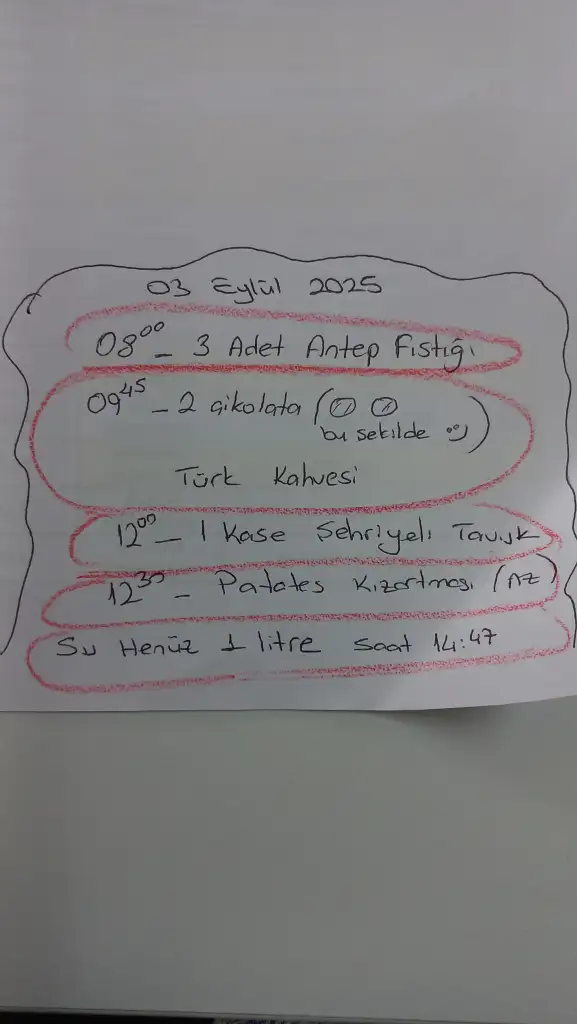 03 Eylül 2025
08⁰⁰ - 3 Adet Antep Fıstığı
09⁴⁵ - 2 çikolata (
bu şekilde )
Türk Kahvesi
12⁰⁰ - 1 Kase Şehriyeli Tavuk
12³⁰ - Patates Kızartması (Az)
Su Henüz 1 litre saat 14:47